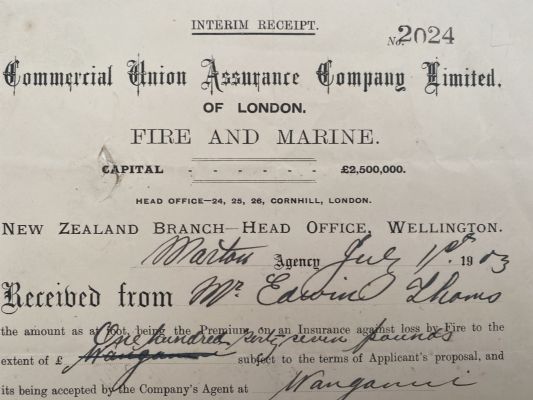 INTERIM RECEIPT.
No. 2024
Commercial Union Assurance Company Limited,
OF LONDON.
FIRE AND MARINE.
CAPITAL - - - - - - £2,500,000.
HEAD OFFICE—24, 25, 26, CORNHILL, LONDON.
NEW ZEALAND BRANCH—HEAD OFFICE, WELLINGTON.
Marton Agency July 1st. 1903
Received from Mr Edwin Thoms
the amount as at foot, being the Premium on an Insurance against loss by Fire to the
One hundred sixty seven pounds
extent of £ Wanganui subject to the terms of Applicant's proposal, and
its being accepted by the Company's Agent at Wanganui